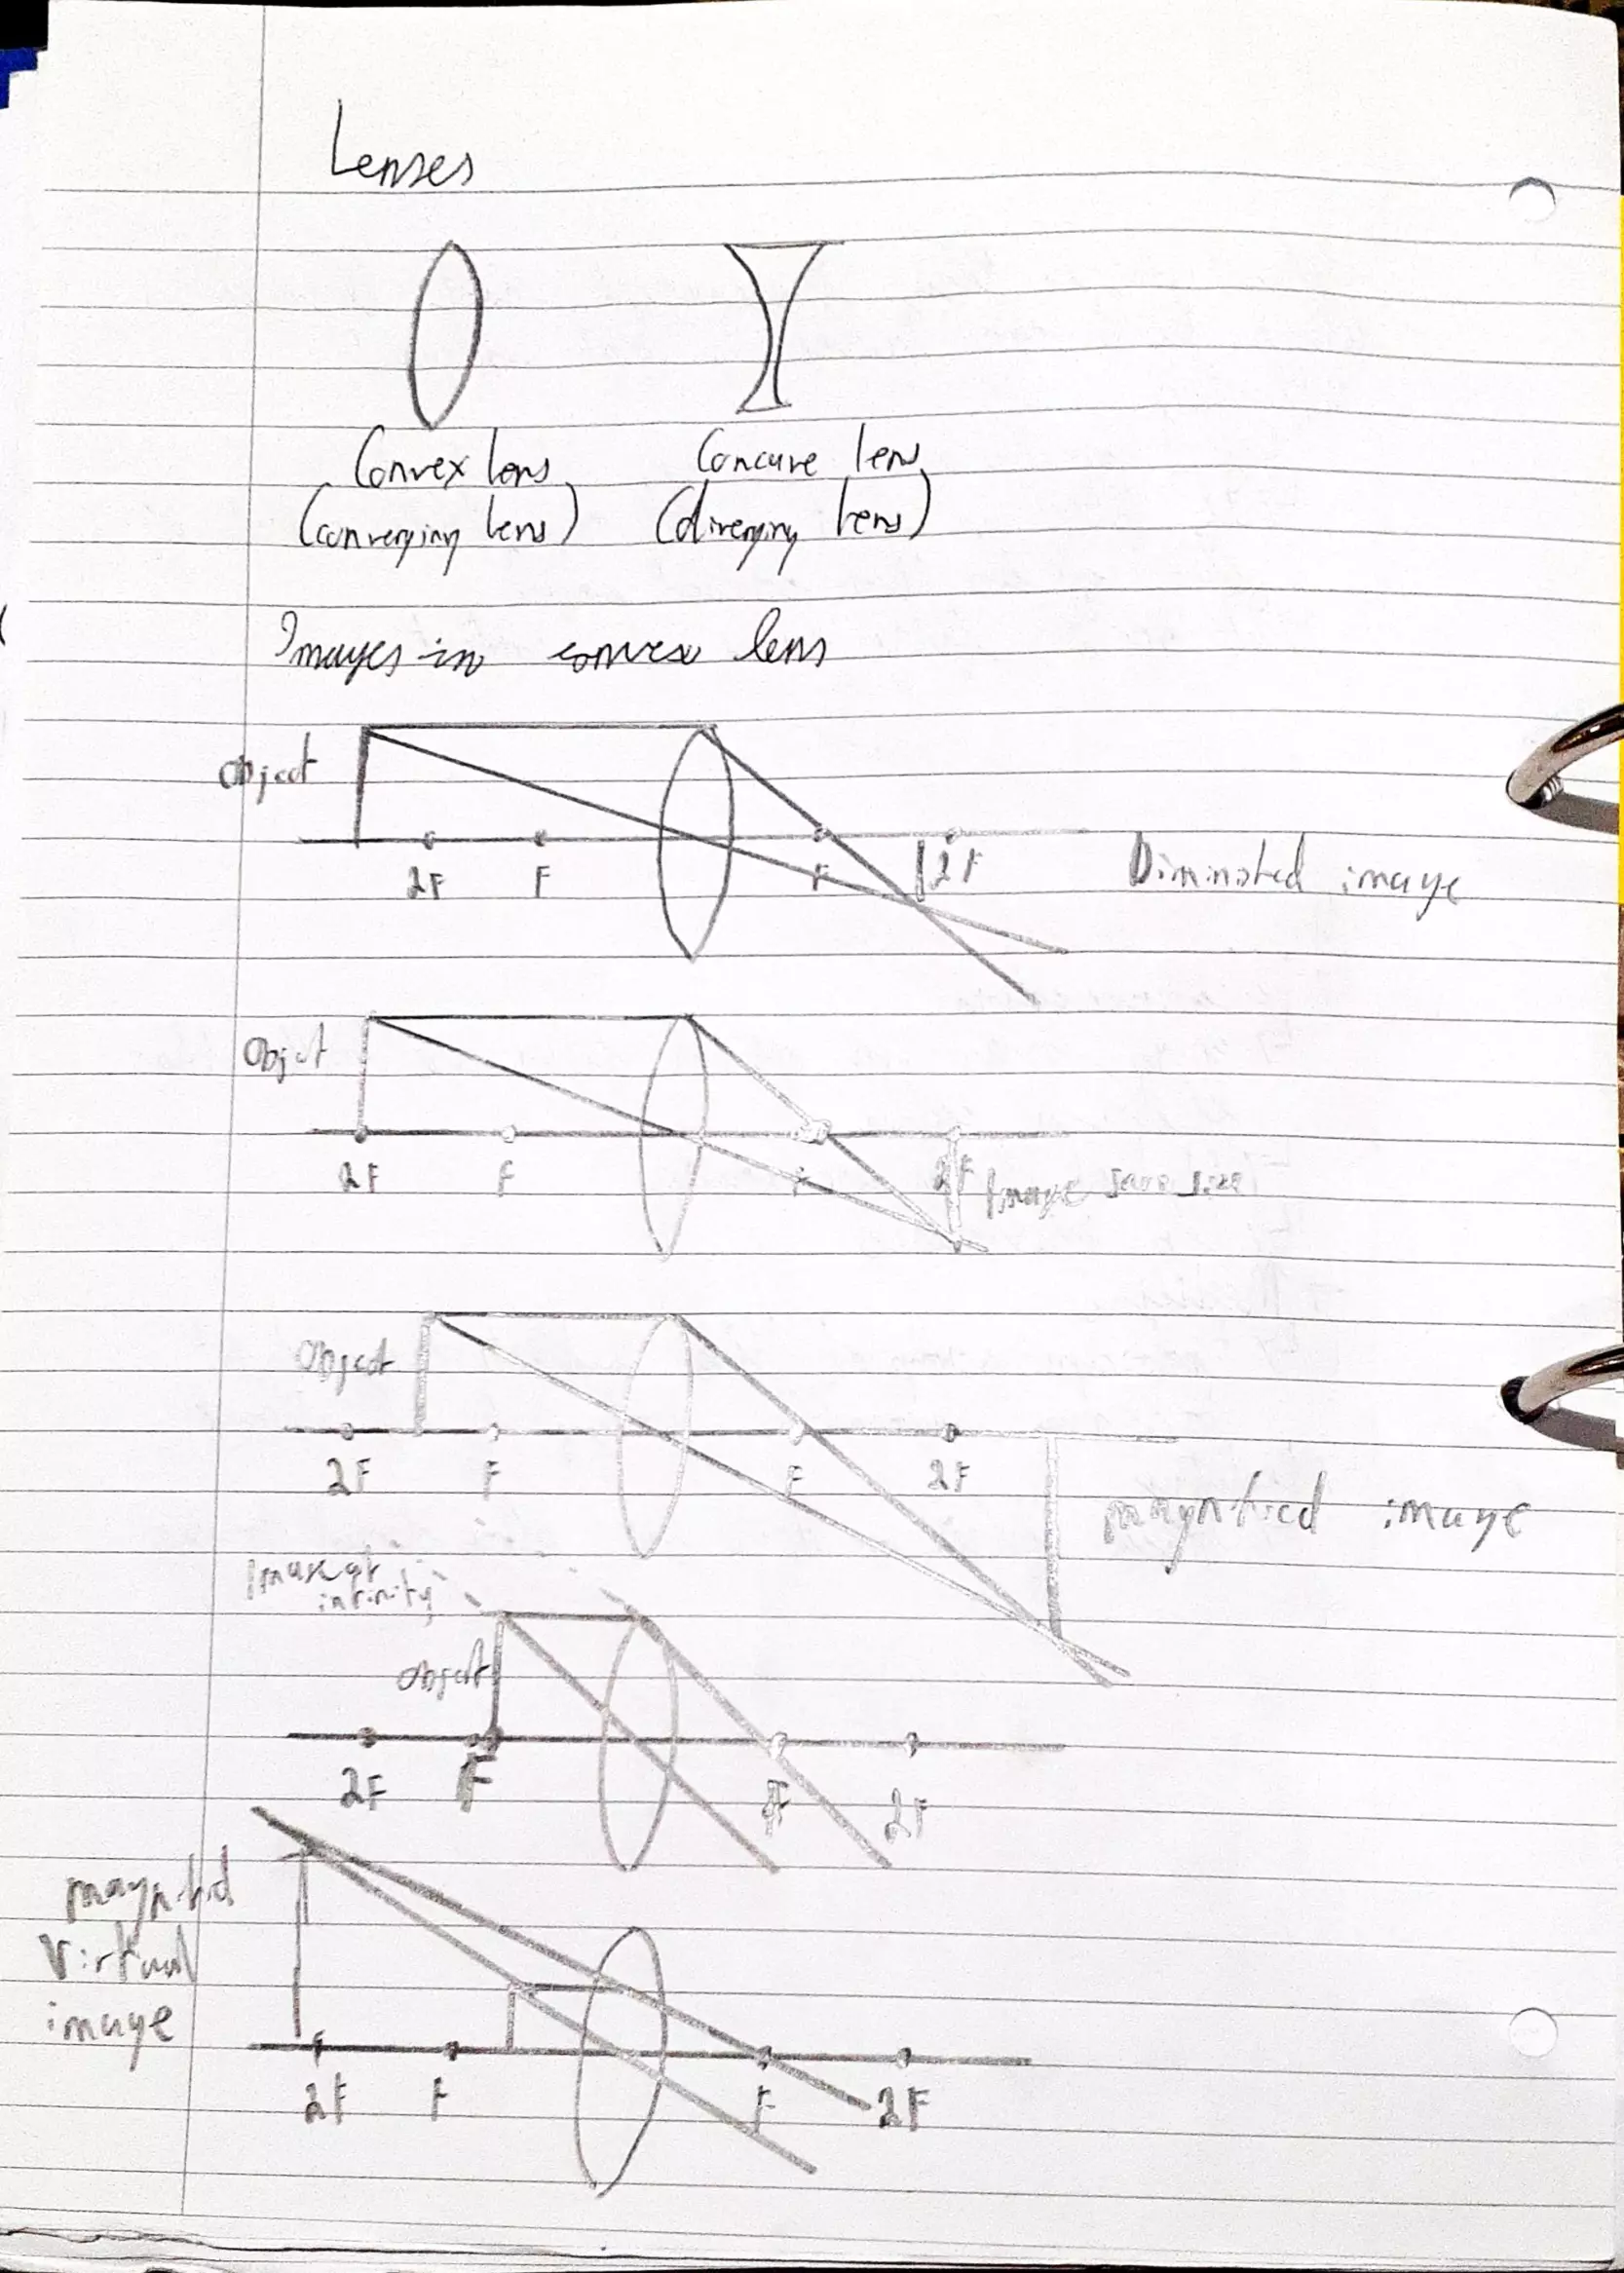 Lenses
Convex lens
(converging lens)
Concave lens
(diverging lens)
Images in convex lens
Object
2F F F 2F
Diminished image
Object
2F F F 2F Image same size
Object
2F F F 2F
magnified image
Image at
infinity
Object
2F F F 2F
magnified
virtual
image
2F F F 2F